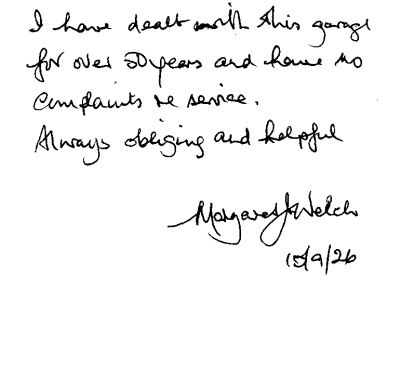 I have dealt with this garage
for over 50 years and have no
complaints re service.
Always obliging and helpful
Margaret J Welch
15/9/26